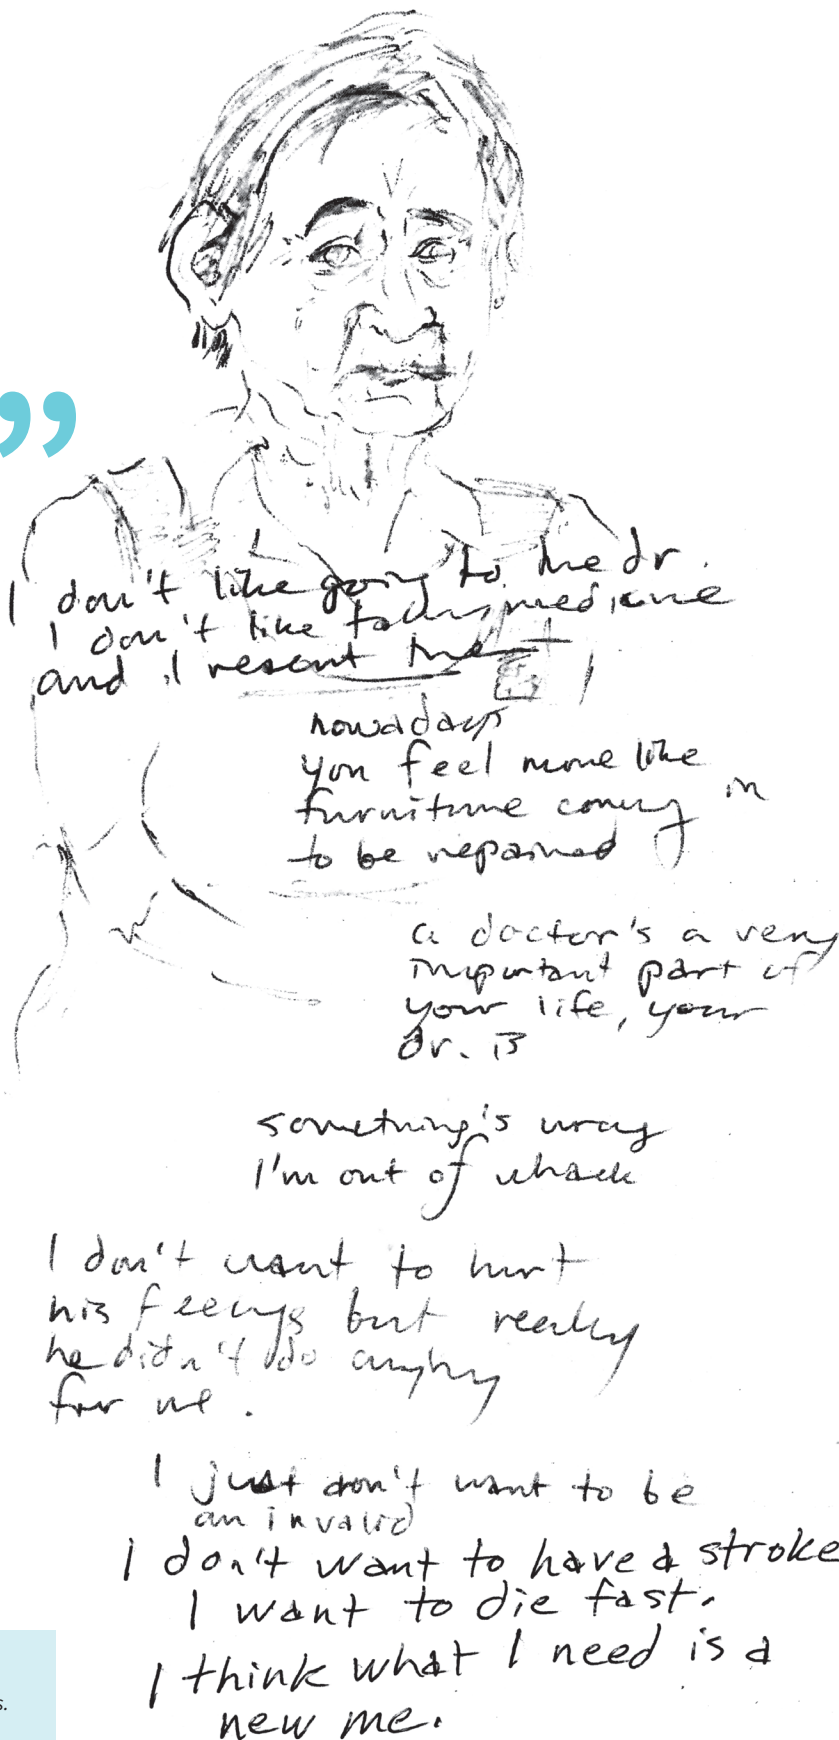 I don't like going to the dr.
I don't like taking medicine
and I resent that
nowadays
you feel more like
furniture coming in
to be repaired
a doctor's a very
important part of
your life, your
dr. is
something's wrong
I'm out of whack
I don't want to hurt
his feelings but really
he didn't do anything
for me.
I just don't want to be
an invalid
I don't want to have a stroke
I want to die fast.
I think what I need is a
new me.
s.